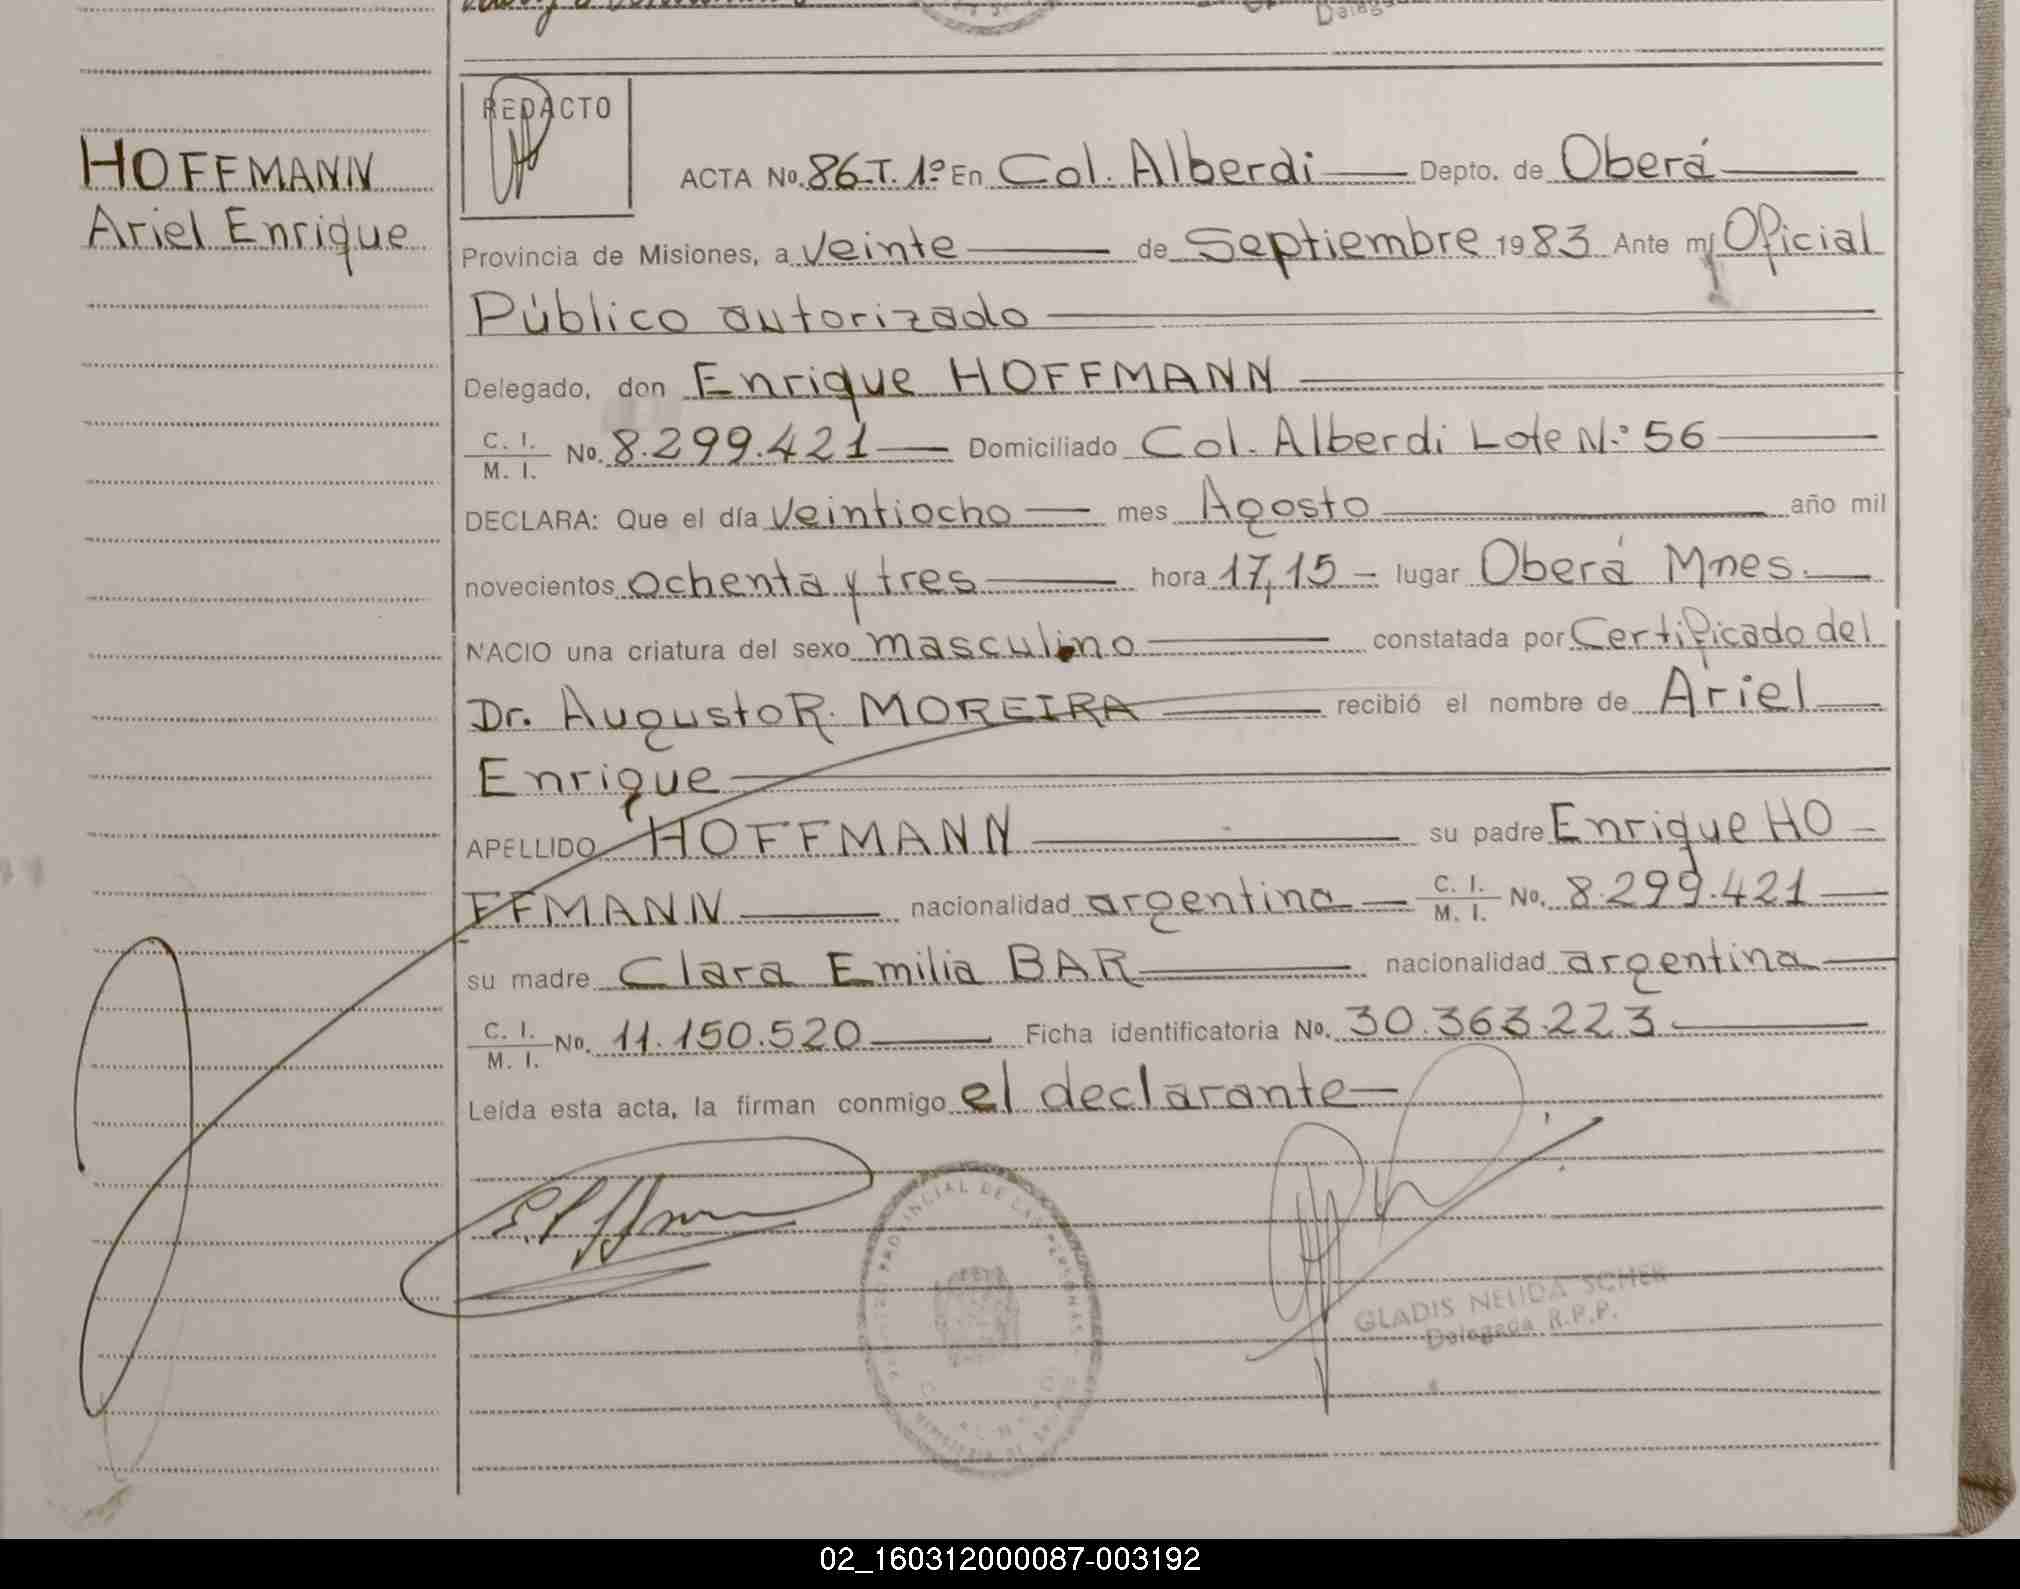 REDACTO
HOFFMANN
Ariel Enrique
ACTA No. 86-T. 1º En Col. Alberdi Depto. de Oberá
Provincia de Misiones, a veinte de Septiembre 1983 Ante mí Oficial
Público autorizado
Delegado, don Enrique HOFFMANN
C. I. / M. I. No. 8.299.421 Domiciliado Col. Alberdi Lote N.º 56
DECLARA: Que el día veintiocho mes Agosto año mil
novecientos ochenta y tres hora 17,15 - lugar Oberá Mnes.
NACIO una criatura del sexo masculino constatada por Certificado del
Dr. Augusto R. MOREIRA recibió el nombre de Ariel
Enrique
APELLIDO HOFFMANN su padre Enrique HO-
FFMANN nacionalidad argentina C. I. / M. I. No. 8.299.421
su madre Clara Emilia BAR nacionalidad argentina
C. I. / M. I. No. 11.150.520 Ficha identificatoria No. 30.363.223
Leída esta acta, la firman conmigo el declarante
PROVINCIAL DE LAS PERSONAS
GLADIS NELIDA SCHER
Delegada R.P.P.
02_160312000087-003192